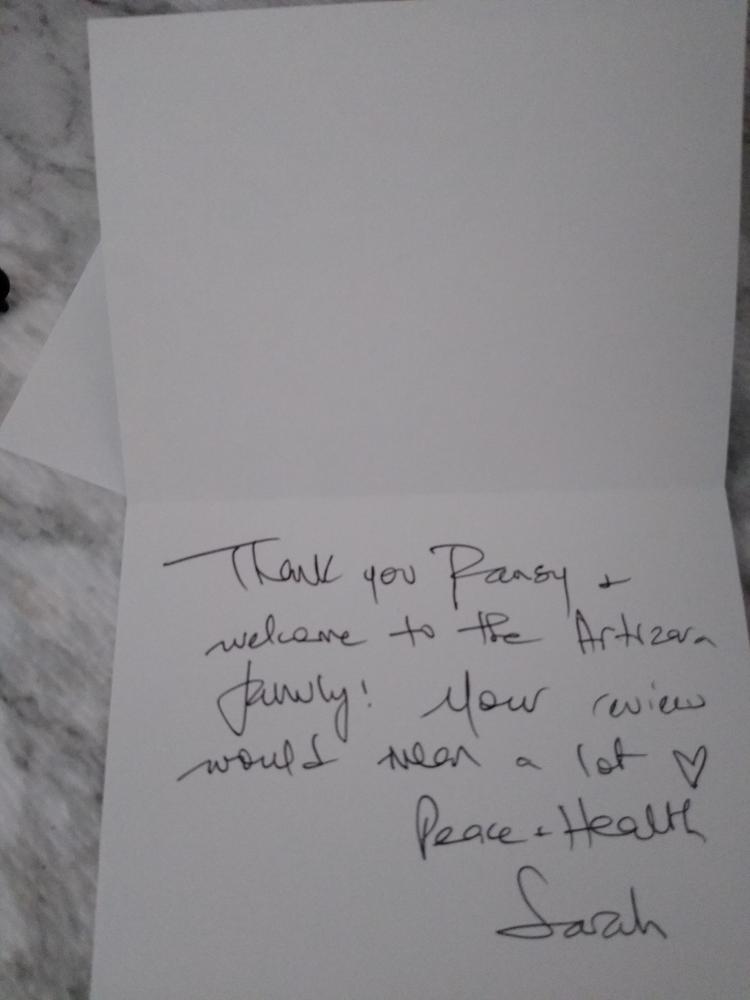 Thank you Pansy +
welcome to the Artizara
family! Your review
would mean a lot ♡
Peace + Health
Sarah